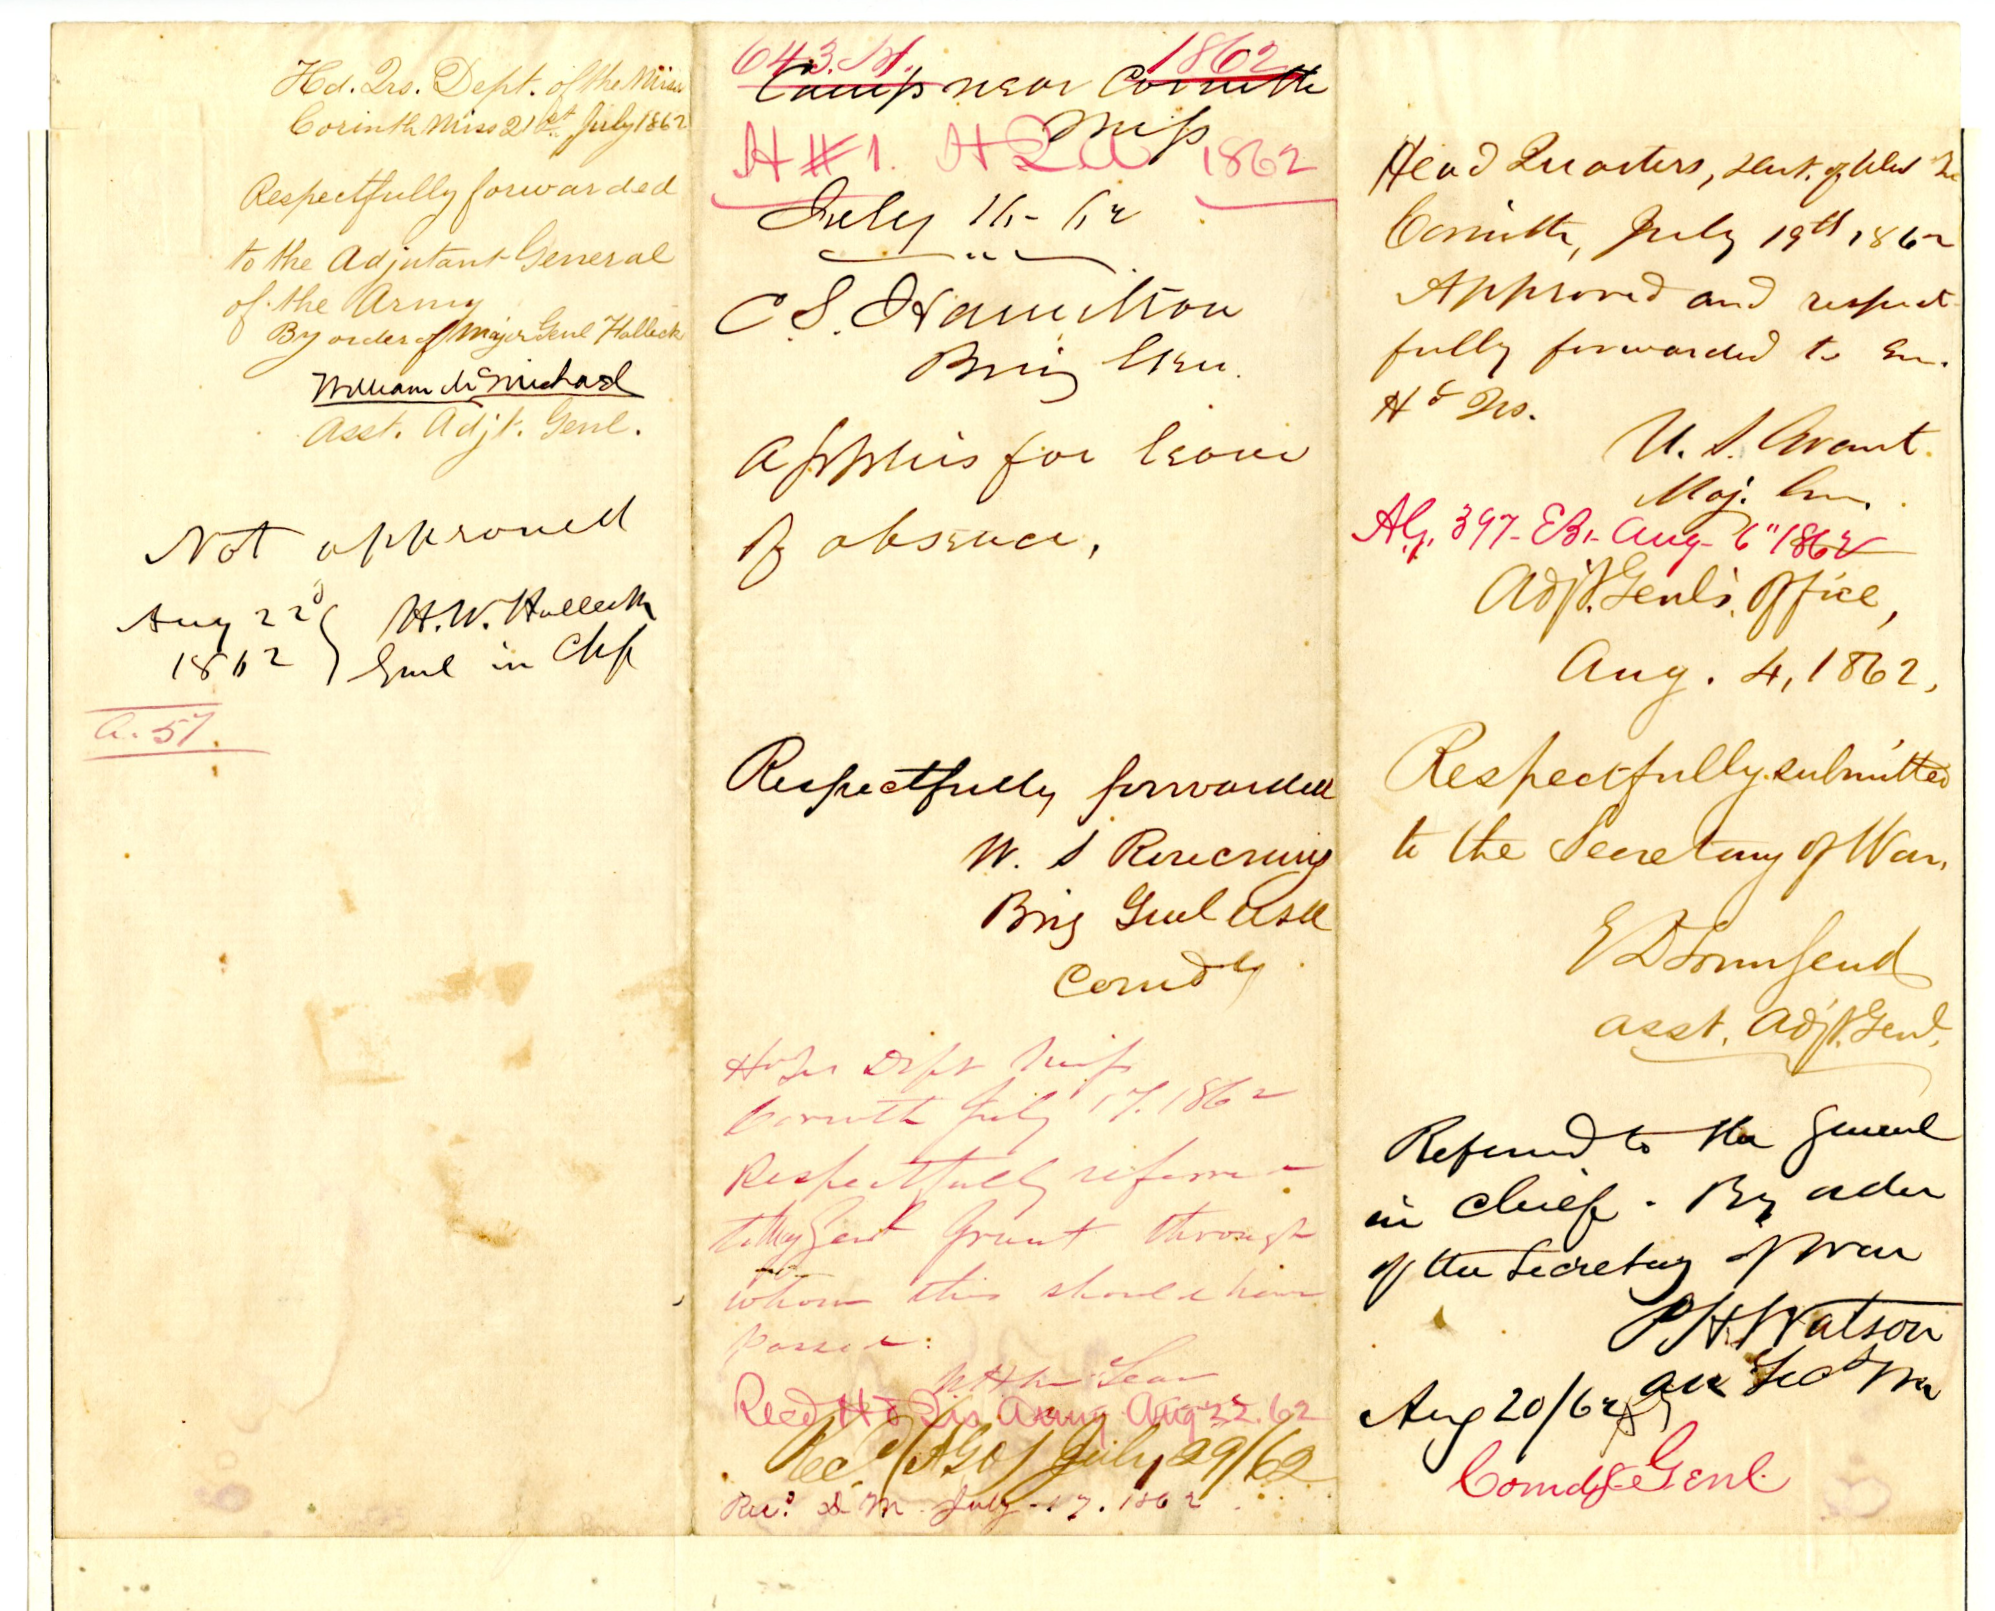 Hd. Qrs. Dept. of the Miss
Corinth Miss 21st July 1862
Respectfully forwarded
to the Adjutant General
of the Army
By order of Major Genl Halleck
William McMichael
Asst. Adjt. Genl.
Not approved
Aug 22d
1862
H. W. Halleck
Genl in Chf
a. 57.
643. H. 1862
Camp near Corinth
Miss
H #1. H Q A 1862
July 16 - 62
C S. Hamilton
Brig Gen.
Applies for leave
of absence,
Respectfully forwarded
W. S Rosecrans
Brig Genl USA
Comdg
Hd Qrs Dept Miss
Corinth July 17. 1862
Respectfully referred
to Maj Genl Grant through
whom this should have
passed:
Recd Hd Qrs Army Aug 22. 62
Recd (AGO) July 29/62
Recd. D M. July 17. 1862
Head Quarters, Dist. of West Te
Corinth, July 19th 1862
Approved and respect
fully forwarded to Gn.
Hd Qrs.
U. S. Grant
Maj. Gen.
AG. 397- EB. Aug 6" 1862
Adjt. Genl's. Office,
Aug. 4, 1862,
Respectfully submitted
to the Secretary of War,
E D Townsend
asst. Adjt. Genl.
Referred to the General
in chief. By order
of the Secretary of War
P H Watson
Ass Secy War
Aug 20/62
Comdg Genl.